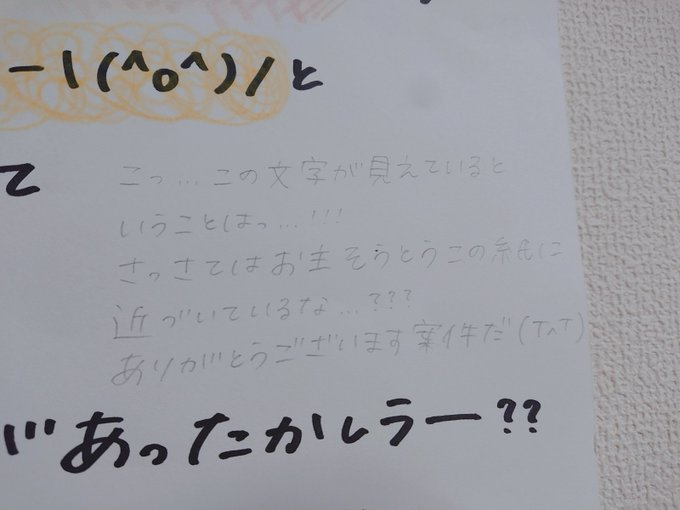 ー\(^o^)/と
て
こっ...この文字が見えていると
いうことはっ...!!!
さっさてはお主そうとうこの紙に
近づいているな...???
ありがとうございます案件だ(T^T)
があったかしらー??